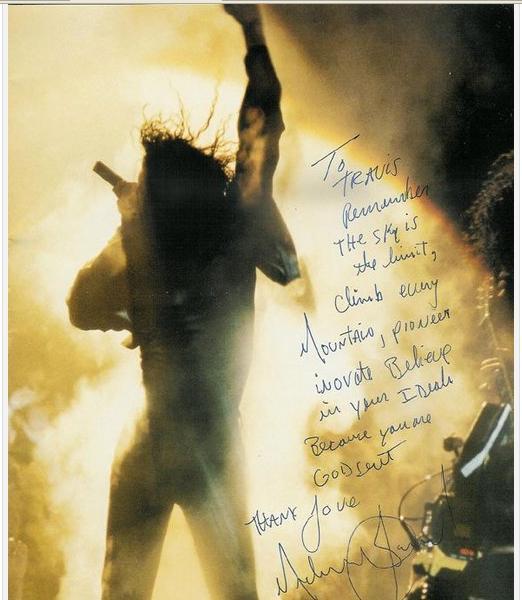 To
TRAVIS
Remember
THE SKY IS
the limit,
Climb every
Mountain, pioneer
inovate Believe
in your IDeals
Because you are
GODSENT
THANX Love